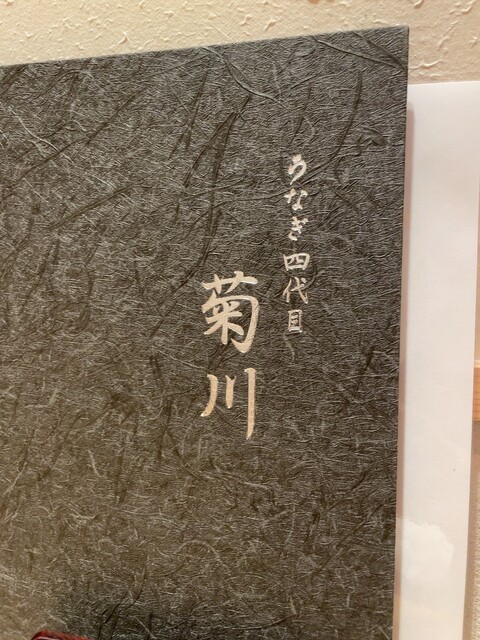 うなぎ四代目
菊川